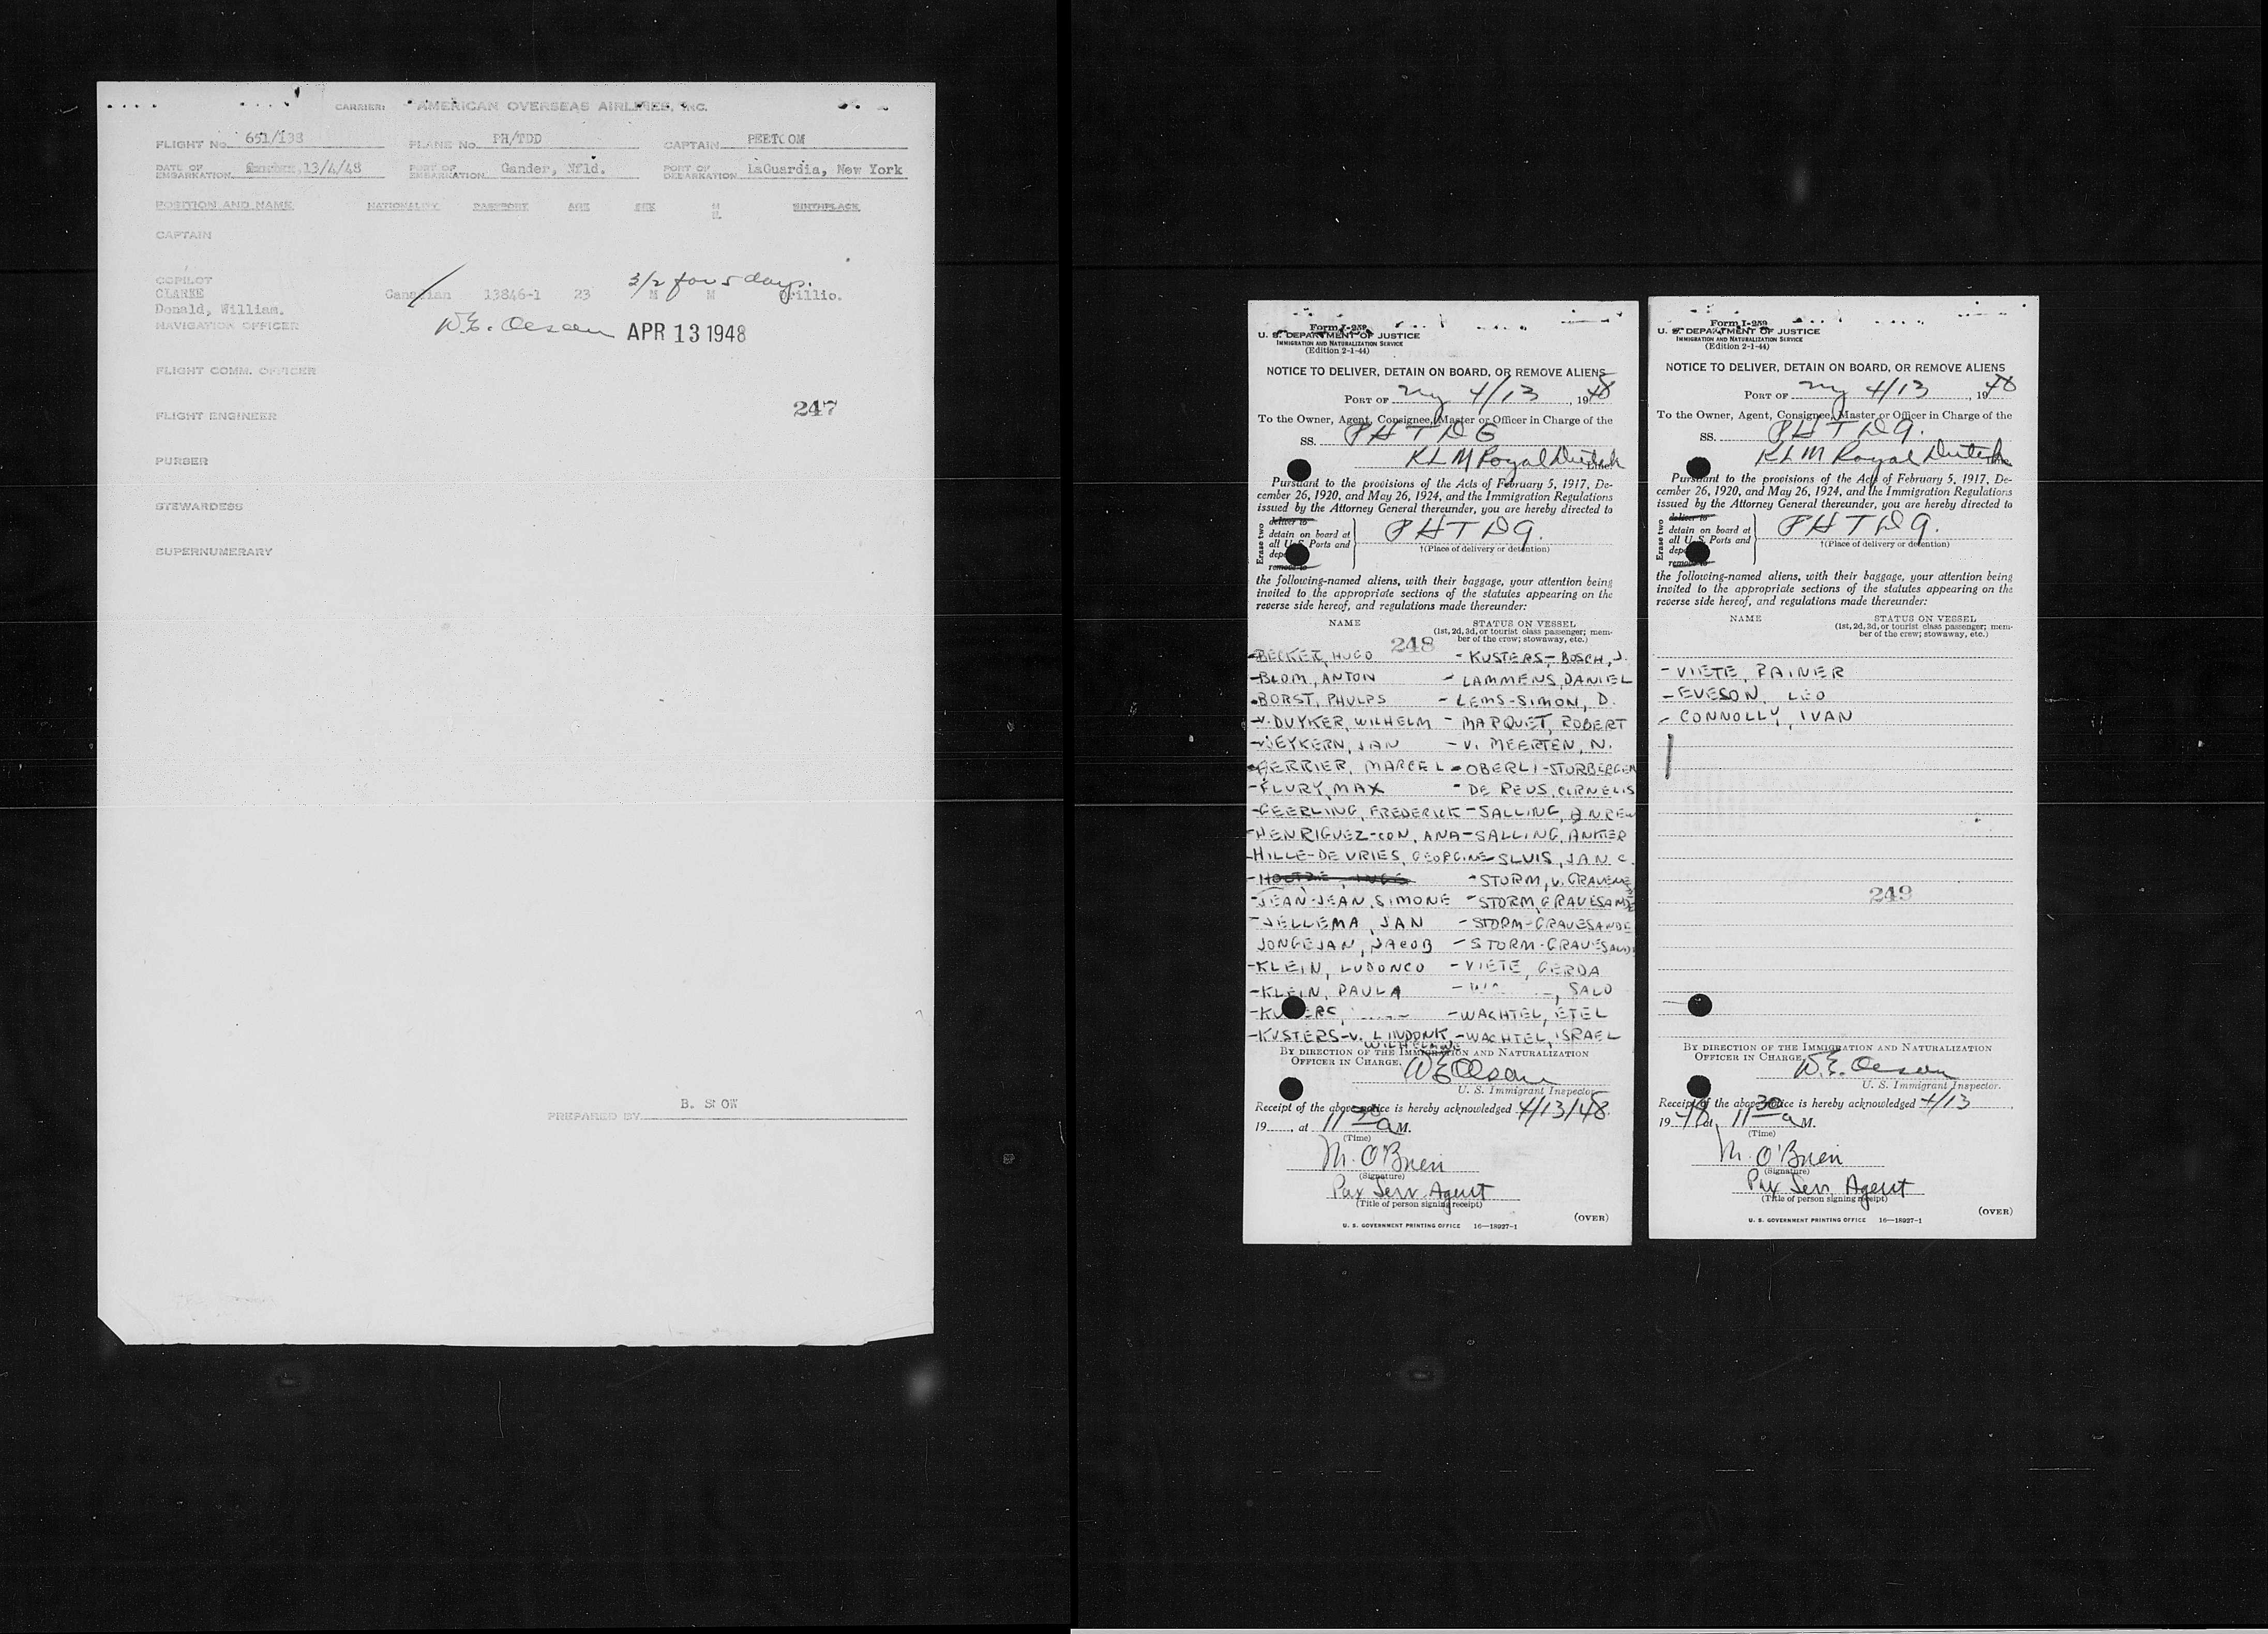 CARRIER: AMERICAN OVERSEAS AIRLINES, INC.
FLIGHT No. 651/138 PLANE No. PH/TDD CAPTAIN PEETOOM
DATE OF EMBARKATION 13/4/48 PORT OF EMBARKATION Gander, Nfld. PORT OF DEBARKATION LaGuardia, New York
POSITION AND NAME NATIONALITY PASSPORT AGE SEX M BIRTHPLACE
CAPTAIN
3/2 for 5 days.
COPILOT
CLARKE Canadian 13846-1 23 M M Orillio.
Donald, William.
NAVIGATION OFFICER
W.E. Olsson APR 13 1948
FLIGHT COMM. OFFICER
247
FLIGHT ENGINEER
PURSER
STEWARDESS
SUPERNUMERARY
PREPARED BY B. SNOW
Form I-259
U. S. DEPARTMENT OF JUSTICE
IMMIGRATION AND NATURALIZATION SERVICE
(Edition 2-1-44)
NOTICE TO DELIVER, DETAIN ON BOARD, OR REMOVE ALIENS
PORT OF NY 4/13, 1948
To the Owner, Agent, Consignee, Master or Officer in Charge of the
SS. PHTDG
KLM Royal Dutch
Pursuant to the provisions of the Acts of February 5, 1917, De-
cember 26, 1920, and May 26, 1924, and the Immigration Regulations
issued by the Attorney General thereunder, you are hereby directed to
Erase two
deliver to
detain on board at
all U. S. Ports and
remove to
PHTDG.
†(Place of delivery or detention)
the following-named aliens, with their baggage, your attention being
invited to the appropriate sections of the statutes appearing on the
reverse side hereof, and regulations made thereunder:
NAME STATUS ON VESSEL
(1st, 2d, 3d, or tourist class passenger; mem-
ber of the crew; stowaway, etc.)
248
-BECKER, HUGO - KUSTERS-BOSCH, J.
-BLOM, ANTON - LAMMENS, DANIEL
-BORST, PHULPS - LEMS-SIMON, D.
-V. DUYKER, WILHELM - MARQUET, ROBERT
-V. EYKERN, JAN - V. MEERTEN, N.
-FERRIER, MARCEL - OBERLI-STURBERGEN
-FLURY, MAX - DE REUS, CORNELIS
-GEERLING, FREDERICK - SALLING, ANREW
-HENRIGUEZ-CON, ANA - SALLING, ANKER
-HILLE-DE VRIES, GEORGINE - SLUIS, JAN C.
- STORM, V. GRAVENES
-JEAN-JEAN, SIMONE - STORM, GRAVESANDE
-JELLEMA, JAN - STORM-GRAVESANDE
JONGEJAN, JACOB - STORM-GRAVESANDE
-KLEIN, LUDONCO - VIETE, GERDA
-KLEIN, PAULA - , SALO
- WACHTEL, ETEL
-KUSTERS-V. LINDONK - WACHTEL, ISRAEL
BY DIRECTION OF THE IMMIGRATION AND NATURALIZATION
OFFICER IN CHARGE.
W E Olsson
U. S. Immigrant Inspector.
Receipt of the above notice is hereby acknowledged 4/13/48.
19, at 11 30 a M.
(Time)
M. O'Brien
(Signature)
Pax Serv. Agent
(Title of person signing receipt)
(OVER)
U. S. GOVERNMENT PRINTING OFFICE 16—18927-1
Form I-259
U. S. DEPARTMENT OF JUSTICE
IMMIGRATION AND NATURALIZATION SERVICE
(Edition 2-1-44)
NOTICE TO DELIVER, DETAIN ON BOARD, OR REMOVE ALIENS
PORT OF NY 4/13, 1948
To the Owner, Agent, Consignee, Master or Officer in Charge of the
SS. PHTDG.
KLM Royal Dutch
Pursuant to the provisions of the Acts of February 5, 1917, De-
cember 26, 1920, and May 26, 1924, and the Immigration Regulations
issued by the Attorney General thereunder, you are hereby directed to
Erase two
deliver to
detain on board at
all U. S. Ports and
remove to
PHTDG.
†(Place of delivery or detention)
the following-named aliens, with their baggage, your attention being
invited to the appropriate sections of the statutes appearing on the
reverse side hereof, and regulations made thereunder:
NAME STATUS ON VESSEL
(1st, 2d, 3d, or tourist class passenger; mem-
ber of the crew; stowaway, etc.)
- VIETE, RAINER
- EVESON, LEO
- CONNOLLY, IVAN
249
BY DIRECTION OF THE IMMIGRATION AND NATURALIZATION
OFFICER IN CHARGE.
W. E. Olsson
U. S. Immigrant Inspector.
Receipt of the above notice is hereby acknowledged 4/13,
1948, at 11 30 a M.
(Time)
M. O'Brien
(Signature)
Pax Serv. Agent
(Title of person signing receipt)
(OVER)
U. S. GOVERNMENT PRINTING OFFICE 16—18927-1